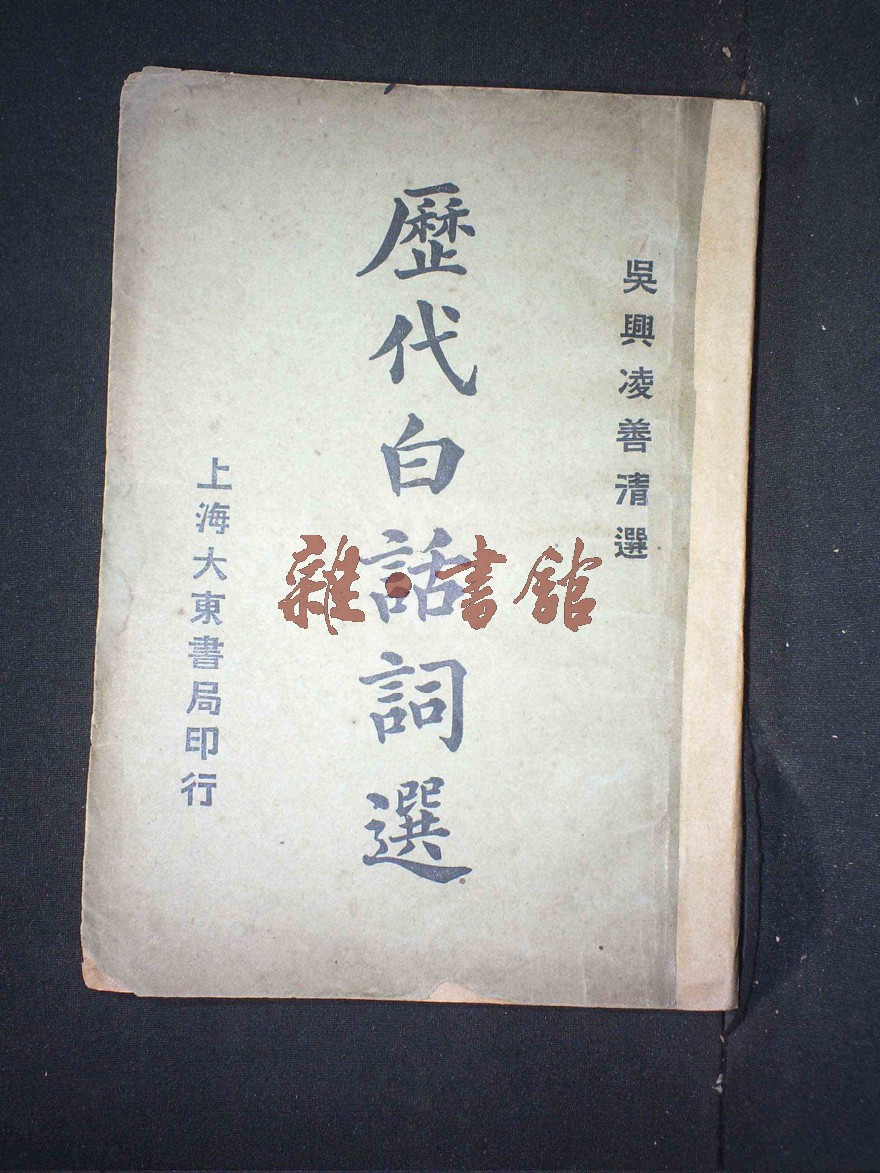 吳興凌善清選
歷代白話詞選
上海大東書局印行
雜·書館